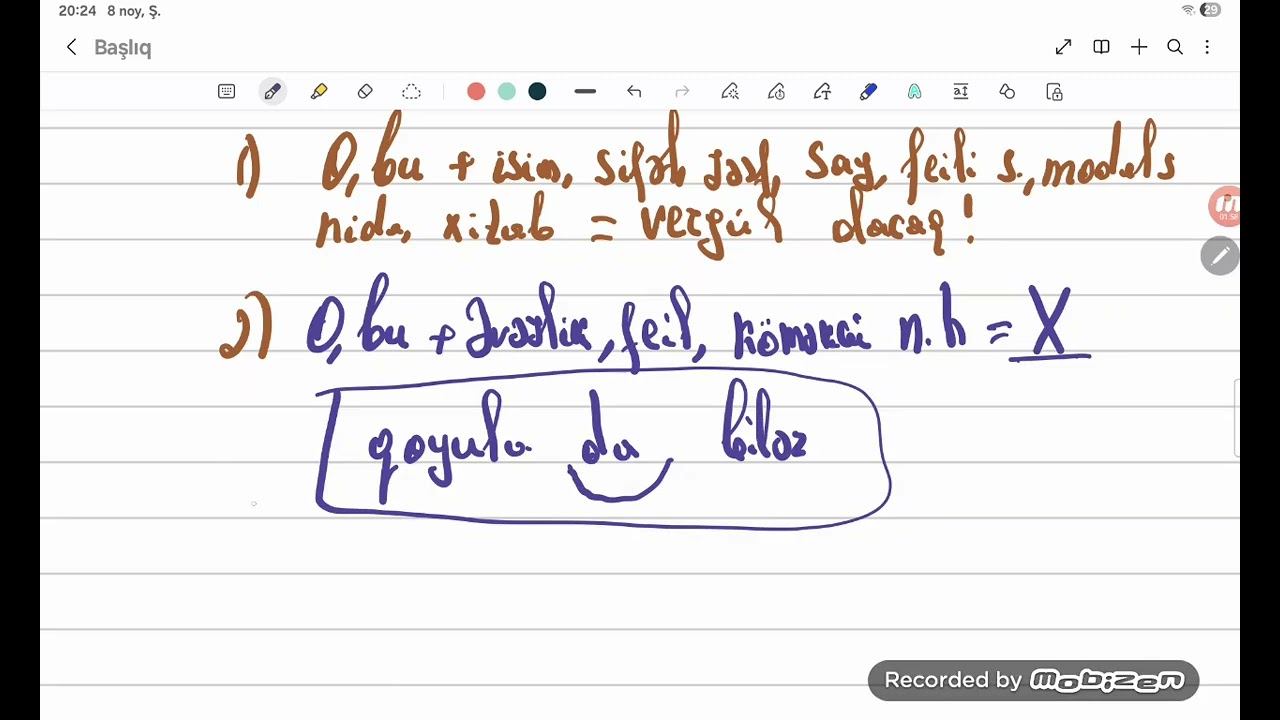 20:24 8 noy, Ş. 29
Başlıq
01:58
1) O, bu + isim, sifət, zərf, say, feili s., modal s
nida, xitab = vergül olacaq!
2) O, bu + Əvəzlik, feil, köməkçi n.h = X
qoyula da bilər
Recorded by mobizen